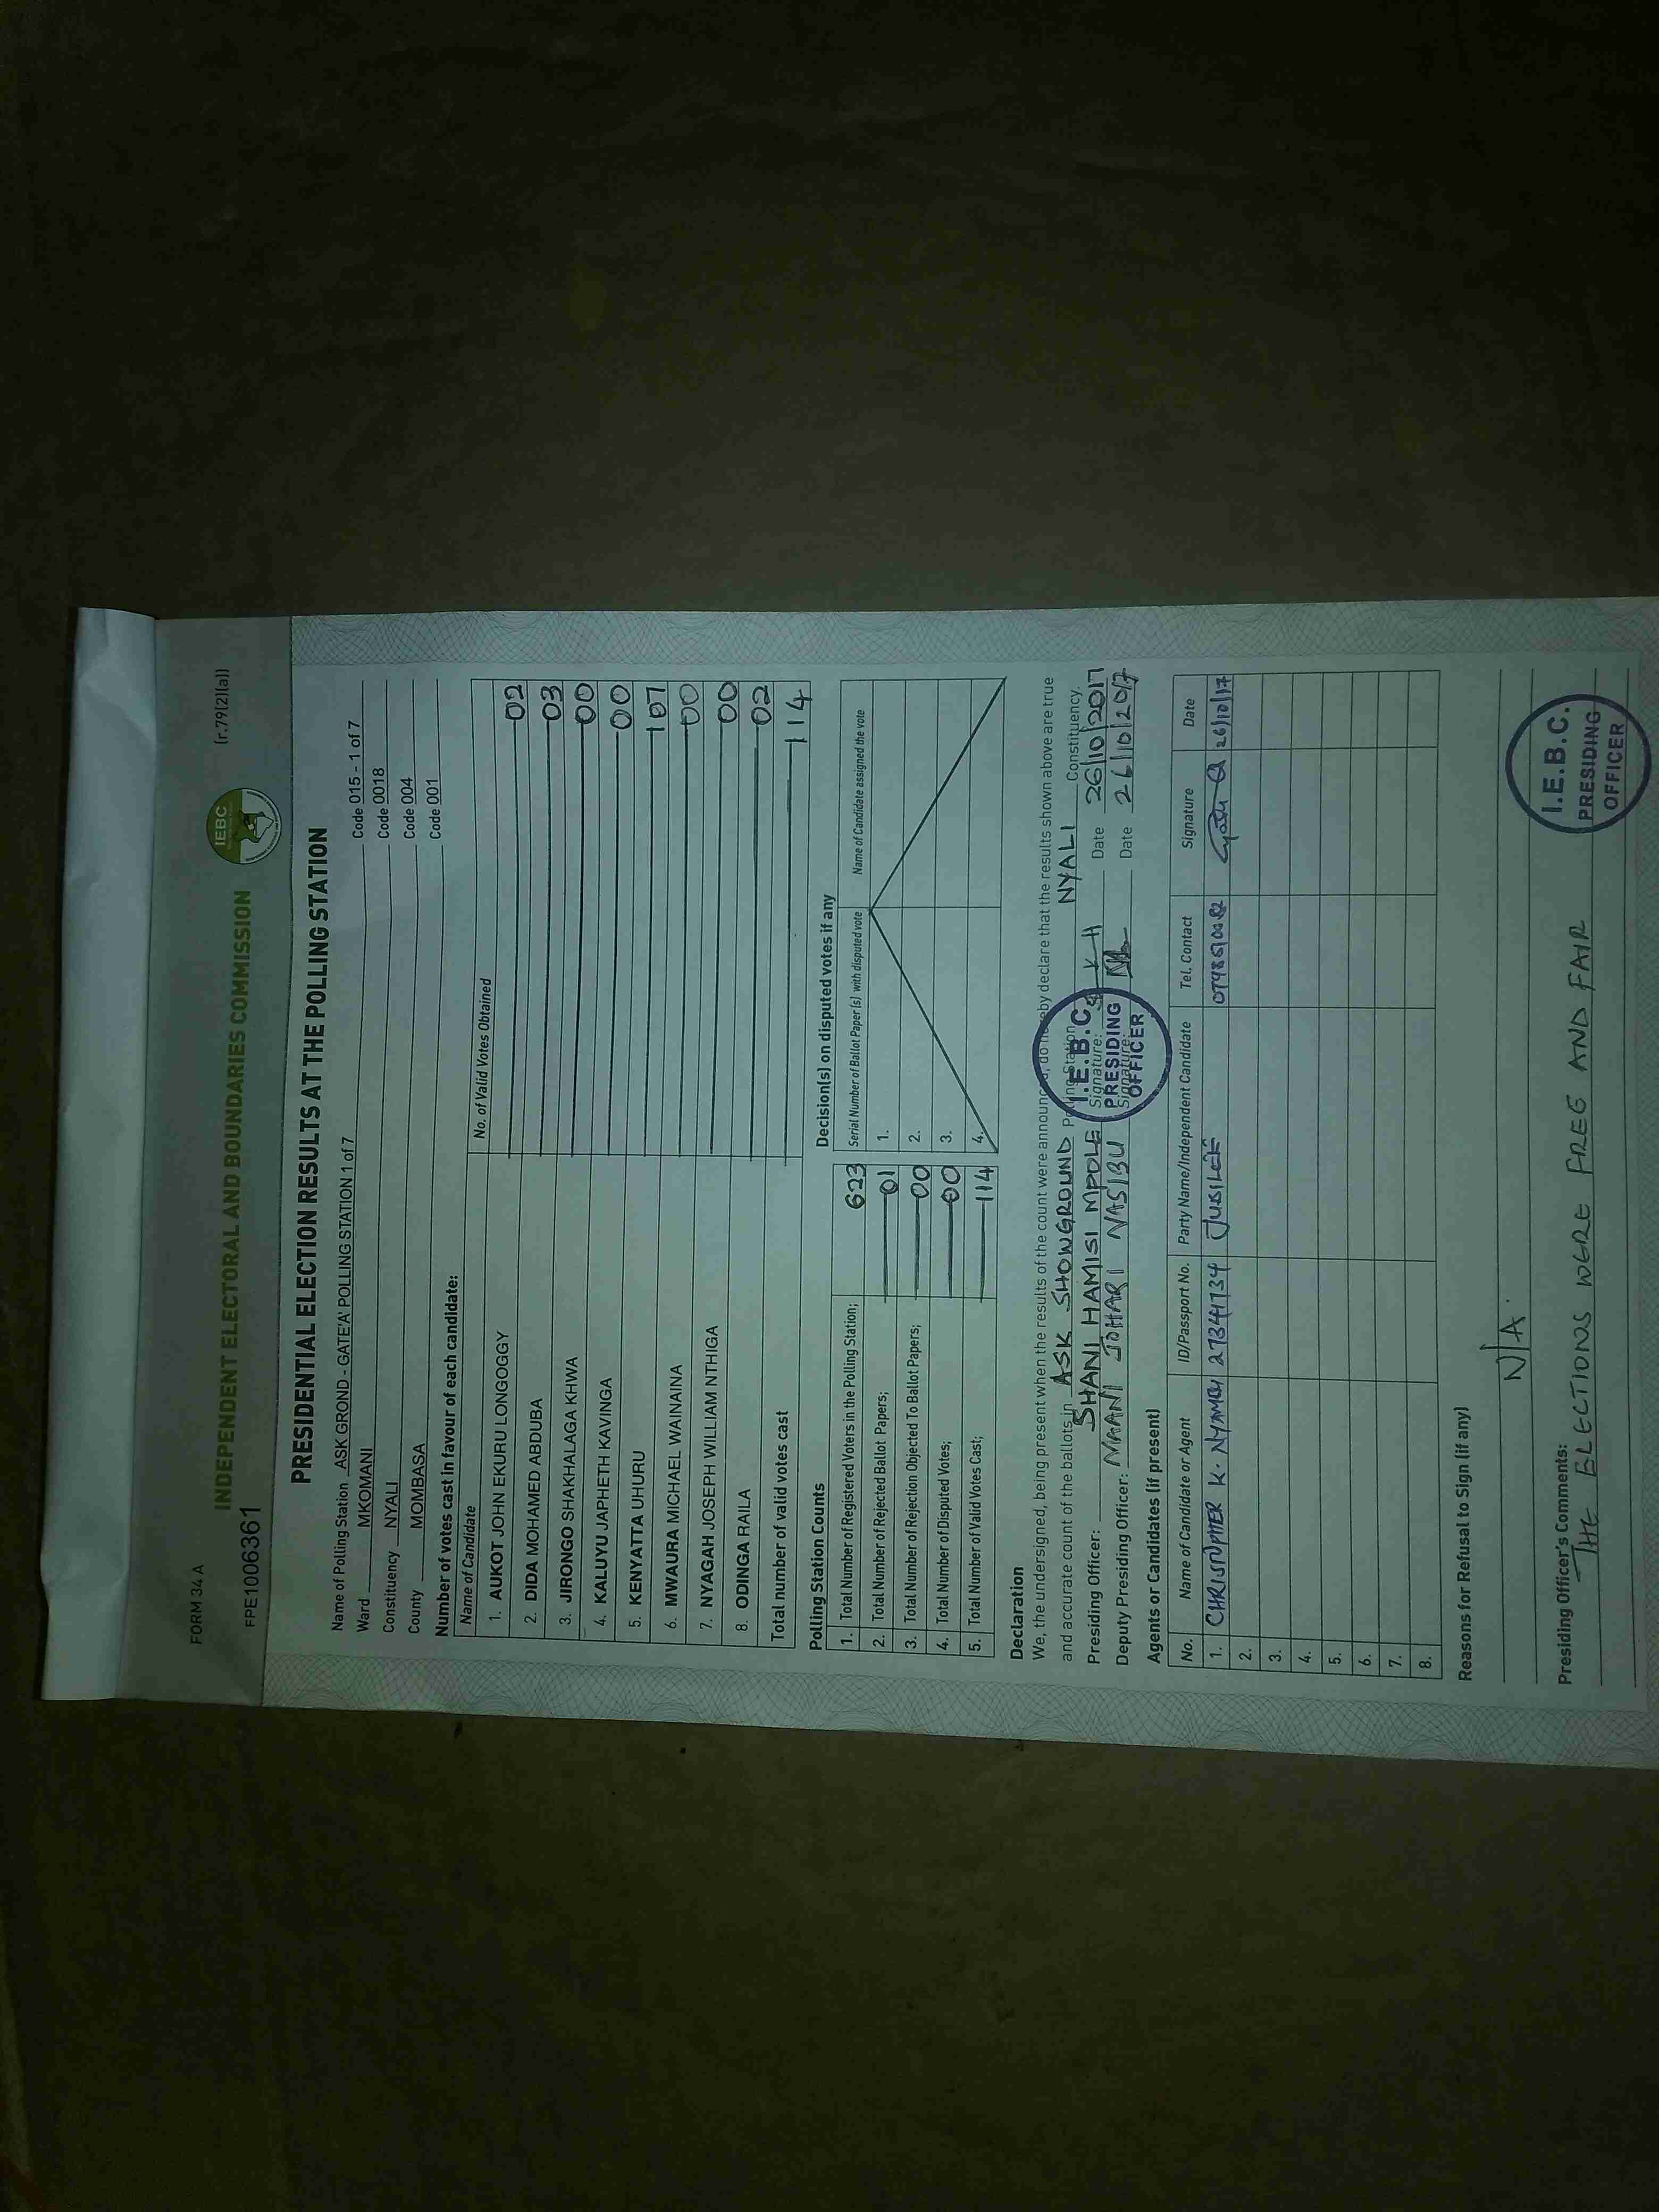 FORM 34 A
(r.79(2)(a))
IEBC
INDEPENDENT ELECTORAL AND BOUNDARIES COMMISSION
FPE1006361
PRESIDENTIAL ELECTION RESULTS AT THE POLLING STATION
Name of Polling Station ASK GROND - GATE'A' POLLING STATION 1 of 7 Code 015 - 1 of 7
Ward MKOMANI Code 0018
Constituency NYALI Code 004
County MOMBASA Code 001
Number of votes cast in favour of each candidate:
Name of Candidate No. of Valid Votes Obtained
1. AUKOT JOHN EKURU LONGOGGY 02
2. DIDA MOHAMED ABDUBA 03
3. JIRONGO SHAKHALAGA KHWA 00
4. KALUYU JAPHETH KAVINGA 00
5. KENYATTA UHURU 107
6. MWAURA MICHAEL WAINAINA 00
7. NYAGAH JOSEPH WILLIAM NTHIGA 00
8. ODINGA RAILA 02
Total number of valid votes cast 114
Polling Station Counts
1. Total Number of Registered Voters in the Polling Station; 623
2. Total Number of Rejected Ballot Papers; 01
3. Total Number of Rejection Objected To Ballot Papers; 00
4. Total Number of Disputed Votes; 00
5. Total Number of Valid Votes Cast; 114
Decision(s) on disputed votes if any
Serial Number of Ballot Paper (s) with disputed vote Name of Candidate assigned the vote
1.
2.
3.
4.
Declaration
We, the undersigned, being present when the results of the count were announced, do hereby declare that the results shown above are true
and accurate count of the ballots in ASK SHOWGROUND Polling Station NYALI Constituency.
Presiding Officer: SHANI HAMISI MPOLE Signature: Date 26/10/2017
Deputy Presiding Officer: MAANI JOHARI NASIBU Signature: Date 26/10/2017
I.E.B.C.
PRESIDING
OFFICER
Agents or Candidates (if present)
No. Name of Candidate or Agent ID/Passport No. Party Name/Independent Candidate Tel. Contact Signature Date
1. K. 27341734 JUBILEE 26/10/17
2.
3.
4.
5.
6.
7.
8.
Reasons for Refusal to Sign (if any)
N/A.
Presiding Officer's Comments:
THE ELECTIONS WERE FREE AND FAIR
I.E.B.C.
PRESIDING
OFFICER